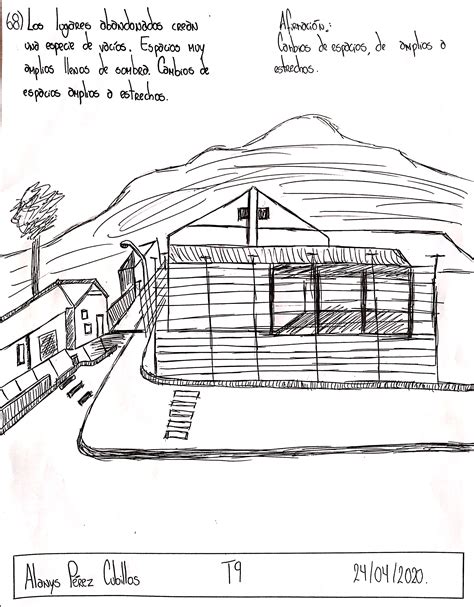 68) Los lugares abandonados crean
una especie de vacíos. Espacios muy
amplios llenos de sombra. Cambios de
espacios amplios a estrechos.
Afirmación.:
Cambios de espacios, de amplios a
estrechos.
Alanys Pérez Cubillos T9 24/04/2020.